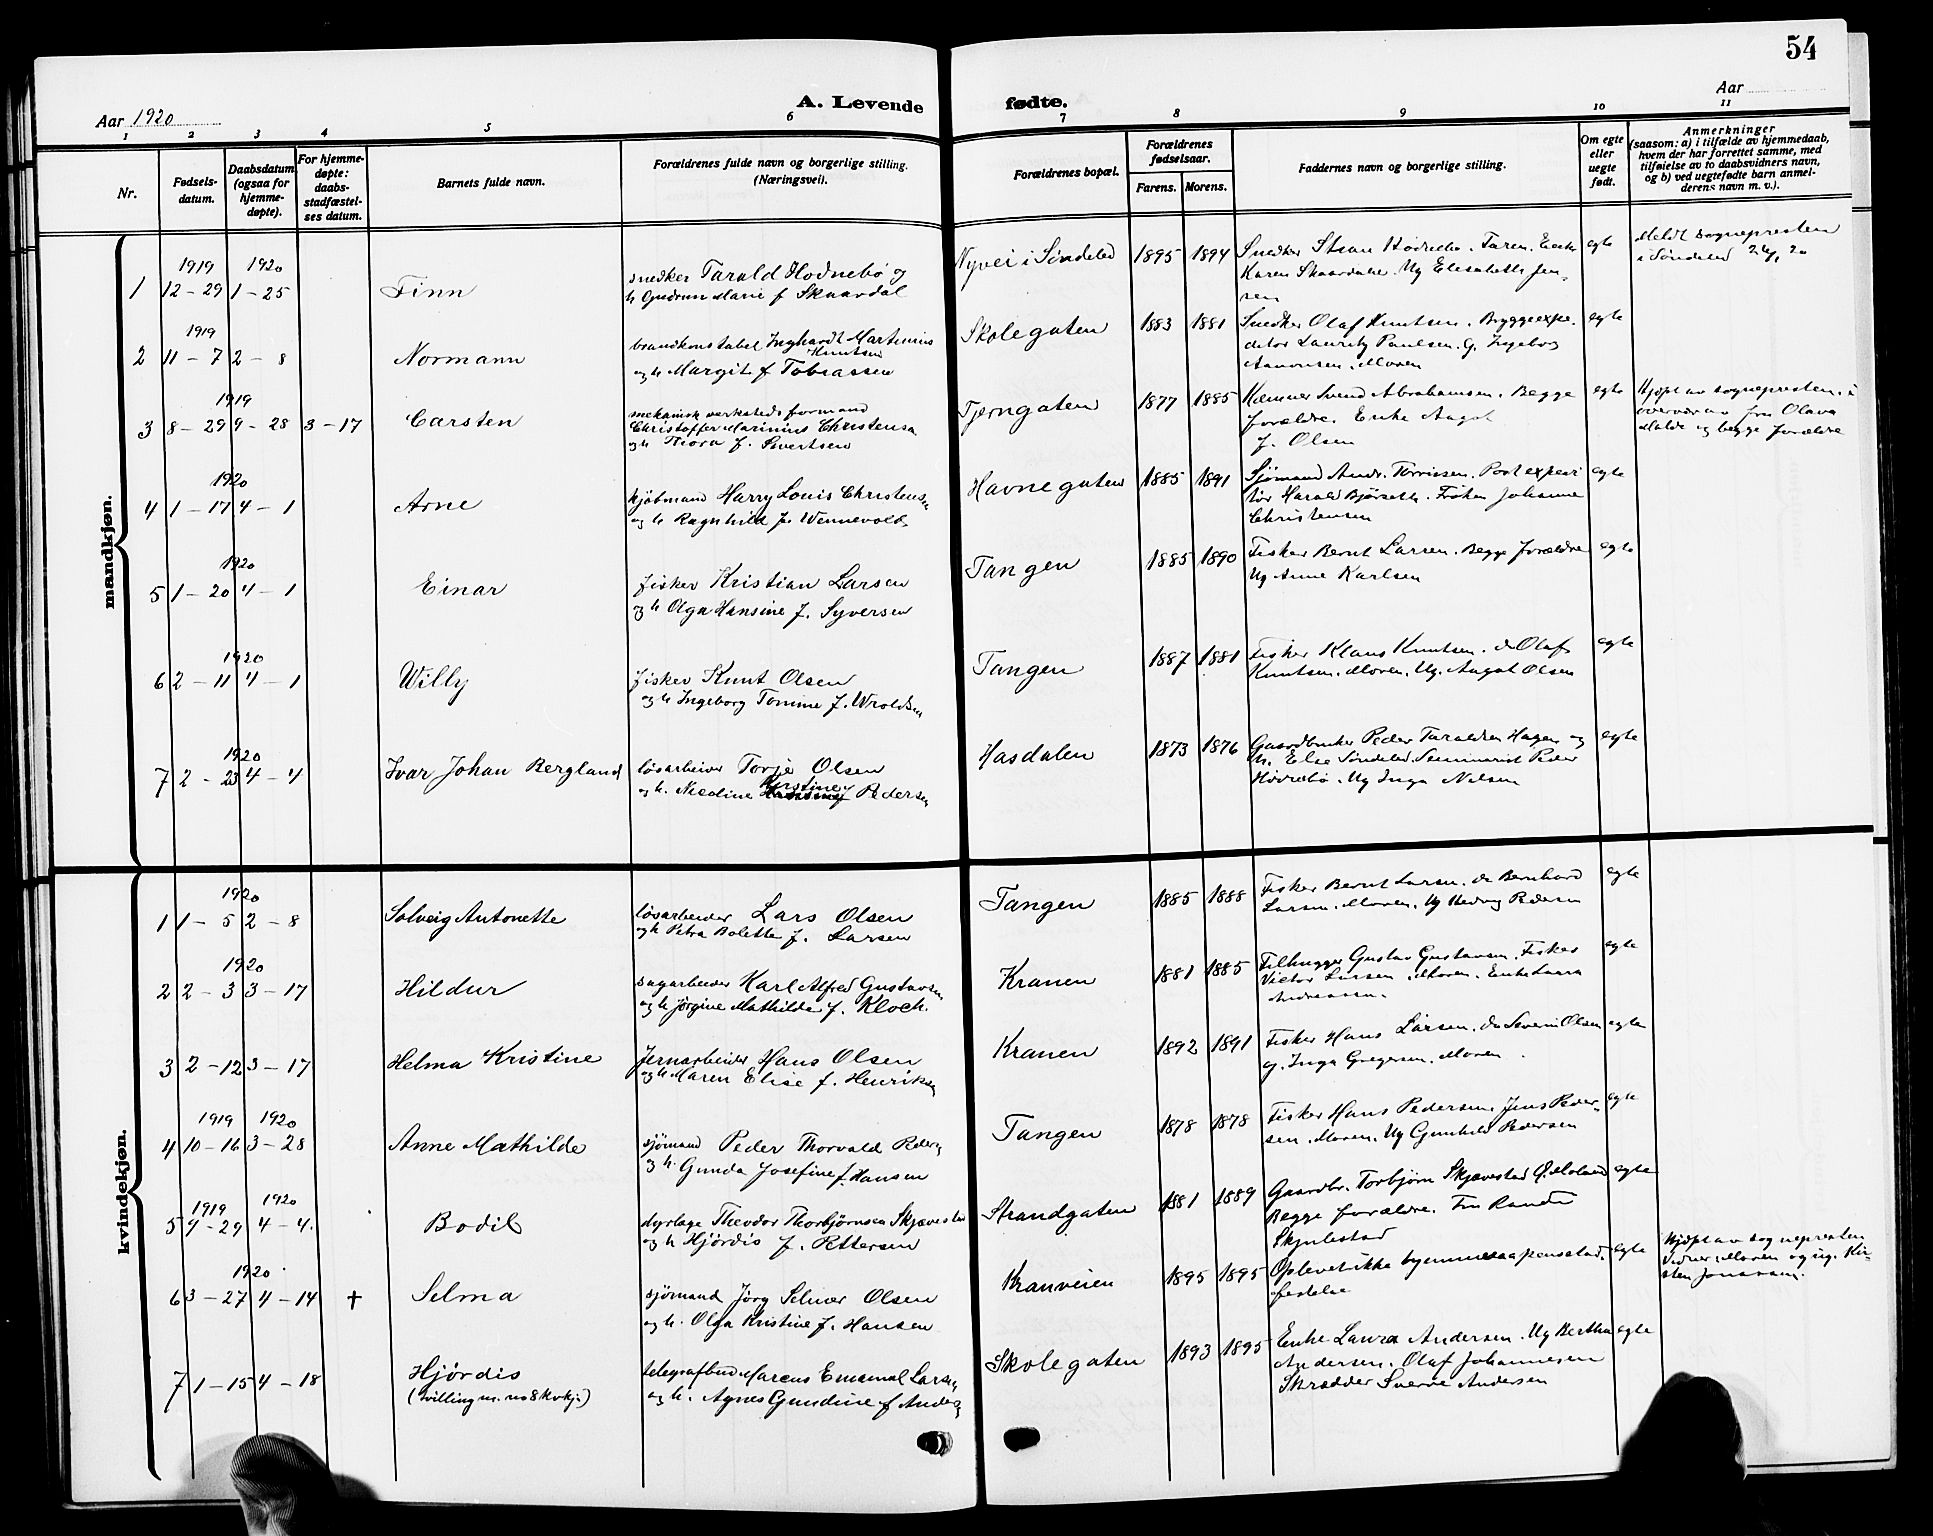 54
A. Levende fødte.
Aar 1920
Aar
1 2 3 4 5 6 7 8 9 10 11
Nr.
Fødsels-
datum.
Daabsdatum
(ogsaa for
hjemme-
døpte).
For hjemme-
døpte:
daabs-
stadfæstel-
ses datum.
Barnets fulde navn.
Forældrenes fulde navn og borgerlige stilling.
(Næringsvei).
Forældrenes bopæl.
Forældrenes
fødselsaar.
Farens. Morens.
Faddernes navn og borgerlige stilling.
Om egte
eller
uegte
født.
Anmerkninger
(saasom: a) i tilfælde av hjemmedaab,
hvem der har forrettet samme, med
tilføielse av to daabsvidners navn,
og b) ved uegtefødte barn anmel-
derens navn m. v.).
mandkjøn.
1919 1920
1 12-29 1-25 Finn
snedker Tarald Hodnebø og
h Gudrun Marie f Skaardal
Nyvei i Søndeled 1895 1894
Karen Skaardal. Ug Elisabeth Jen-
sen
egte
Meldt sognepresten
i Søndeled
1919
2 11-7 2-8 Normann
brandkonstabel Inghardt Martinius
Knutsen
og h Margit f Tobiassen
Skolegaten 1883 1881
Snedker Olaf Knutsen. Bryggeexpe-
ditor Lauritz Paulsen. G. Ingeborg
Moren
egte
1919
3 8-29 9-28 3-17 Carsten
mekanisk verksteds formand
Christoffer Marinius Christensen
og h Thora f. Sivertsen
Tjerngaten 1877 1885
Kæmner Svend Abrahamsen. Begge
forældre. Enke Aagot
f. Olsen
egte
Hjdpt av sognepresten i
overvær av fru Olava
og begge forældre
1920
4 1-17 4-1 Arne
kjøbmand Harry Louis Christensen
og h Ragnhild f. Wennevold
Havnegaten 1885 1891
Sjømand Andr. Tørrissen. Postexpedi-
tør Harald Bjørseth. Frøken Johanne
Christensen
egte
1920
5 1-20 4-1 Einar
fisker Kristian Larsen
og h Olga Hansine f. Syversen
Tangen 1885 1890
Fisker Bernt Larsen. Begge forældre
Ug Anne Karlsen
egte
1920
6 2-11 4-1 Willy
fisker Knut Olsen
og h Ingeborg Tomine f. Wroldsen
Tangen 1887 1881
Fisker Klaus Knutsen. do Olaf
Knutsen. Moren. Ug. Aagot Olsen
egte
1920
7 2-23 4-4 Ivar Johan Bergland
løsarbeider Torje Olsen
Kirstine
og h. Nicoline f Pedersen
Hasdalen 1873 1876
Gaardbruker Peder Taraldsen Hagen og
h. Else Søndeled. Seminarist Peder
Hødnebø. Ug Inga Nilsen
egte
kvindekjøn.
1920
1 1-5 2-8 Solveig Antonette
løsarbeider Lars Olsen
og h Petra Bolette f. Larsen
Tangen 1885 1888
Fisker Bernt Larsen. do Bernhard
Larsen. Moren. Ug Hedvig Pedersen
egte
1920
2 2-3 3-17 Hildur
sagarbeider Karl Alfred Gustavsen
og h Jørgine Mathilde f. Kloch.
Kranen 1881 1885
Tilhugger Gustav Gustavsen. Fisker
Victor Larsen. Moren. Enke Laura
Andreassen.
egte
3 2-12 3-17 Helma Kristine
Jernarbeider Hans Olsen
og h Maren Elise f. Henriksen
Kranen 1892 1891
Fisker Hans Larsen. do Severin Olsen
G. Inga Gregersen. Moren.
egte
1919 1920
4 10-16 3-28 Anne Mathilde
sjømand Peder Thorvald Pedersen
og h. Gunda Josefine f. Hansen
Tangen 1878 1878
Fisker Hans Pedersen. Jens Peder-
sen. Moren. Ug Gunhild Pedersen
egte
1919 1920
5 4-29 4-4. Bodil
dyrlæge Theodor Thorbjørnsen Skjævestad
og h Hjørdis f. Pettersen
Strandgaten 1881 1889
Gaardbr. Torbjørn Skjævestad
Begge forældre. Fru
egte
1920
6 3-27 4-14 † Selma
sjømand Jørg Selmer Olsen
og h. Olga Kristine f. Hansen
Kranveien 1895 1895
Oplevet ikke hjemmedaapens stad-
festelse
egte
Hjdpt av sognepresten
Vidner: Moren og ug. Kir-
sten Jonassen.
7 1-15 4-18 Hjørdis
(tvilling m. no 8 kvkj.)
telegrafbud Marcus Emanuel Larsen
og h. Agnes Gundine f Andersen
Skolegaten 1893 1895
Enke Laura Andersen. Ug Bertha
Andersen. Olaf Johannesen
Skrædder Sverre Andersen
egte